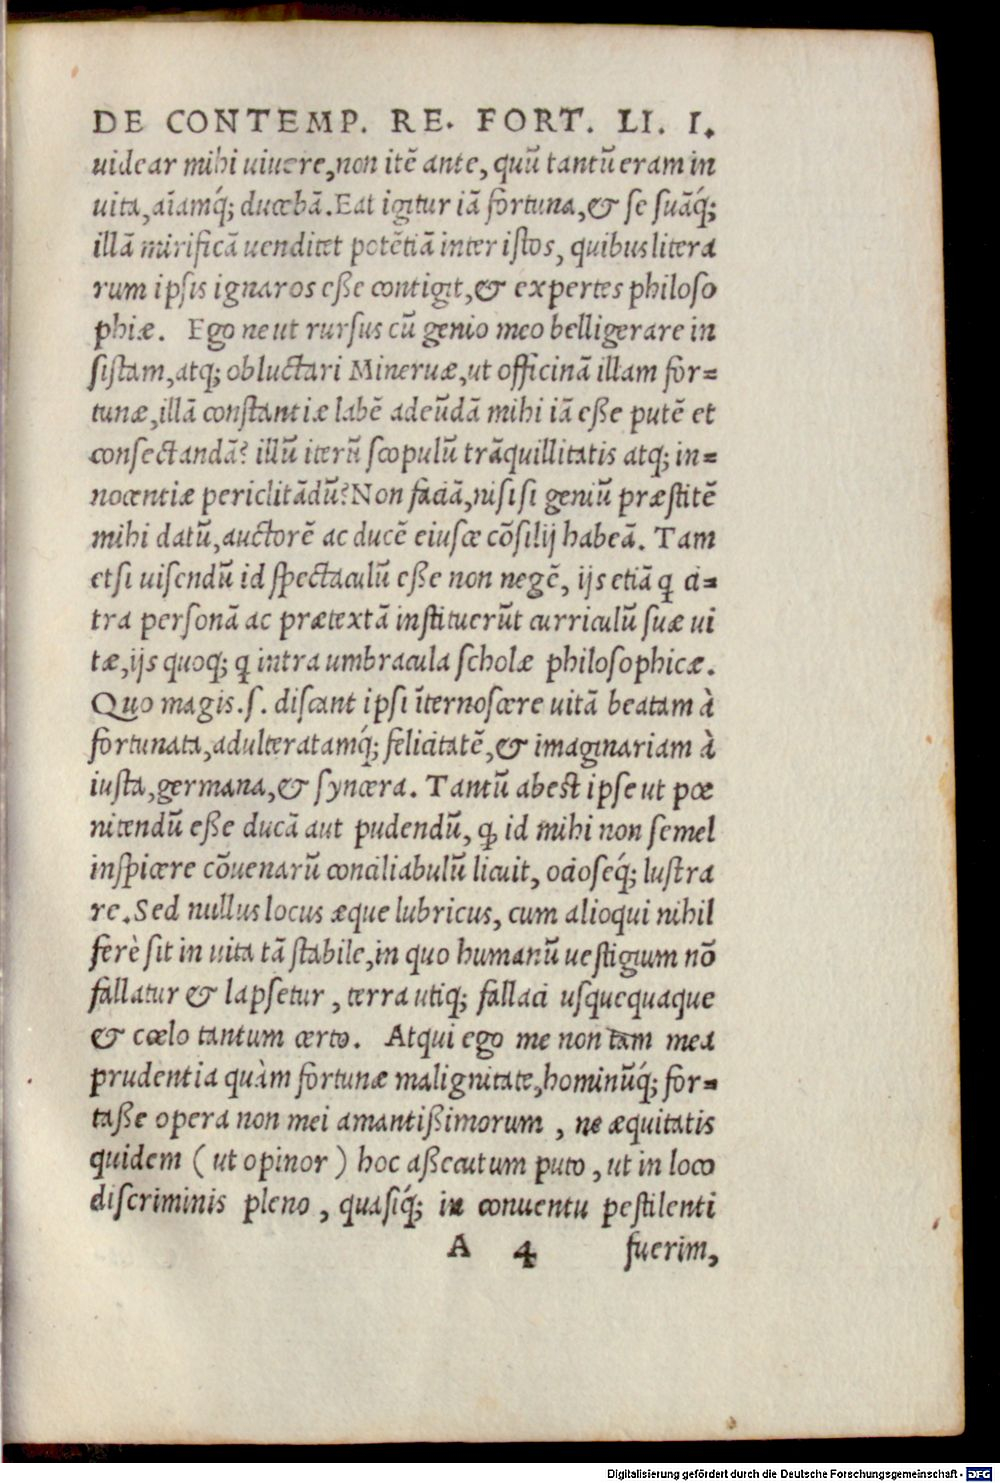 DE CONTEMP. RE. FORT. LI. I.
uidear mihi uiuere, non itē ante, quū tantū eram in
uita, aīamq́; ducebā. Eat igitur iā fortuna, & se suāq́;
illā mirificā uenditet potētiā inter istos, quibus litera
rum ipsis ignaros eße contigit, & expertes philoso
phiæ. Ego ne ut rursus cū genio meo belligerare in
sistam, atq; obluctari Mineruæ, ut officinā illam for=
tunæ, illā constantiæ labē adeūdā mihi iā eße putē et
consectandā? illū iterū scopulū trāquillitatis atq; in=
nocentiæ periclitādū? Non faciā, nisi si geniū præstitē
mihi datū, auctorē ac ducē eiusce cōsilij habeā. Tam
etsi uisendū id spectaculū eße non negē, ijs etiā ꝗ ci=
tra personā ac prætextā instituerūt curriculū suæ ui
tæ, ijs quoq; ꝗ intra umbracula scholæ philosophicæ.
Quo magis .s. discant ipsi īternoscere uitā beatam à
fortunata, adulteratamq́; felicitatē, & imaginariam à
iusta, germana, & syncera. Tantū abest ipse ut pœ
nitendū eße ducā aut pudendū, ꝙ id mihi non semel
inspicere cōuenarū conciliabulū licuit, ocioseq́; lustra
re. Sed nullus locus æque lubricus, cum alioqui nihil
ferè sit in uita tā stabile, in quo humanū uestigium nō
fallatur & lapsetur, terra utiq; fallaci usquequaque
& cœlo tantum certo. Atqui ego me non tam mea
prudentia quàm fortunæ malignitate, hominūq́; for=
taße opera non mei amantißimorum, ne æquitatis
quidem (ut opinor) hoc aßecutum puto, ut in loco
discriminis pleno, quasiq́; in conuentu pestilenti
A 4 fuerim,
Digitalisierung gefördert durch die Deutsche Forschungsgemeinschaft - DFG